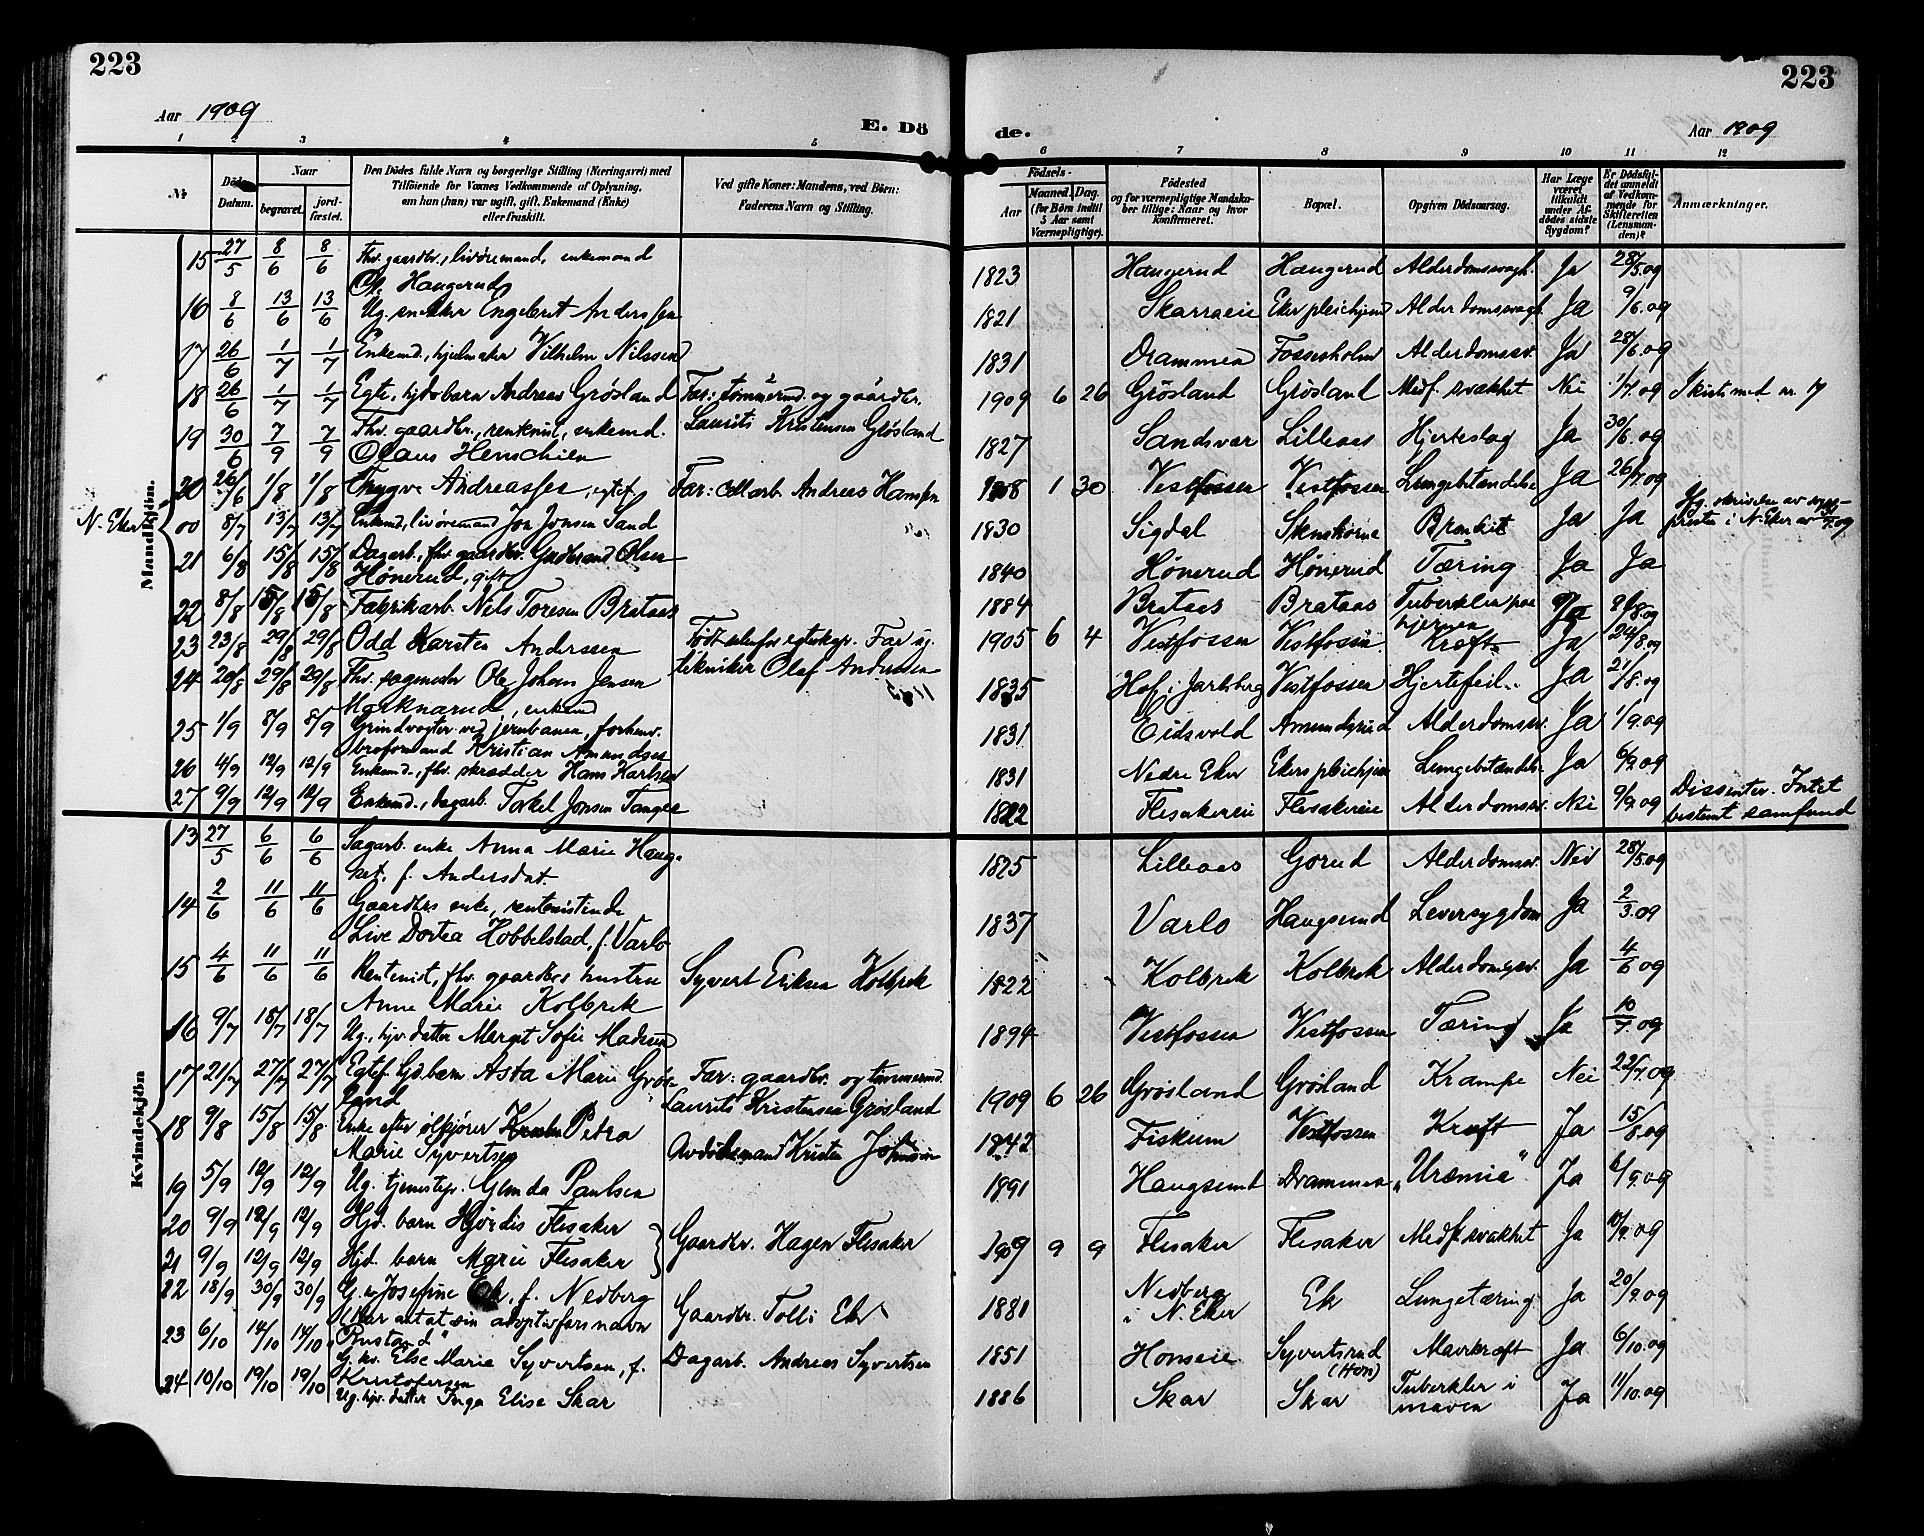 223
223
Aar 1909
E. Dö
de.
Aar 1909
1 2 3 4 5
6 7 8 9 10 11 12
No
Döds-Datum.
Naar
begravet.
jord-fæstet.
Den Dödes fulde Navn og borgerlige Stilling (Næringsvei) med
Tilföiende for Voxnes Vedkommende af Oplysning,
om hun (han) var ugift, gift, Enkemand (Enke)
eller fraskilt.
Ved gifte Koner: Mandens, ved Börn:
Faderens Navn og Stilling.
Födsels-
Aar
Maaned.
Dag.
(for Börn indtil
5 Aar samt
Værnepligtige).
Födested
og for værnepligtige Mandska-
ber tillige: Naar og hvor
konfirmeret.
Bopæl.
Opgiven Dödsaarsag.
Har Læge
været
tilkaldt
under Af-
dödes sidste
Sygdom?
Er Dödsfal-
det anmeldt
af Vedkom-
mende for
Skifteretten
(Lensman-
den)?
Anmærkninger.
Mandkjön.
15 27/5 8/6 8/6 Fhv. gaardbr., livøremand, enkemand
Ole Haugerud 1823 Haugerud Haugerud Alderdomssvagh. Ja 28/5.09
16 8/6 13/6 13/6 Ug. snekker Engebret Anderssen 1821 Skarraeie Eker pleiehjem Alderdomssvagh. Ja 9/6.09
17 26/6 1/7 1/7 Enkemd., hjulmaker Vilhelm Nilssen 1831 Drammen Fossesholm Alderdomssv. Ja 28/6.09
18 26/6 1/7 1/7 Egte, hjdøbarn Andreas Grøsland Far: tømmermd. og gaardbr.
Laurits Kristensen Grøsland 1909 6 26 Grøsland Grøsland Medf. svakhet Nei 1/7.09 Skiftet med nr. 17
19 30/6 7/9 7/9 Fhv. gaardbr., rentenist, enkemd.
Olaus Henschien 1827 Sandsvær Lilleaas Hjerteslag Ja 30/6.09
20 26/6 1/8 1/8 Trygve Andreassen, egtef. Far: Arb. Andreas Hansen 1908 1 30 Vestfossen Vestfossen Lungebetændelse Ja 26/7.09
N. Eker 00 8/7 13/7 13/7 Enkemd., livøremand Jon Jonsen Sand 1830 Sigdal Bronkit Ja Ja Iflg. skrivelse av sogne-
presten i N. Eker av
21 6/8 15/8 15/8 Dagarb., fhv. gaardbr. Gudbrand Olsen
Hønerud, gift 1840 Hønerud Hønerud Tæring Ja Ja
22 8/8 15/8 15/8 Fabrikarb. Nils Toresen Brataas 1884 Brataas Brataas Tuberkler paa
hjernen Ja
23 23/8 29/8 29/8 Odd Karsten Anderssen Født utenfor egteskap. Far ug.
tekniker Olaf Andersen 1905 6 4 Vestfossen Vestfossen Kræft Ja 24/8.09
24 20/8 29/8 29/8 Fhv. sagmester Ole Johan Jensen
Mørknarud, enkemd 1835 Hof i Jarlsberg Vestfossen Hjertefeil Ja 21/8.09
25 1/9 8/9 8/9 Grindvogter ved jernbanen, forhenv.
broformand Kristian Amundsen 1831 Eidsvold Amundsrud Alderdomssv. Ja 1/9.09
26 4/9 12/9 12/9 Enkemd., fhv. skrædder Hans Karlsen 1831 Nedre Eker Ekers pleiehjem Lungebetændels. Ja 6/9.09
27 9/9 12/9 12/9 Enkemd., dagarb. Torkel Jonsen Tangen 1822 Flesakereie Flesakereie Alderdomssv. Nei 9/9.09 Dissenter. Intet
bestemt samfund
Kvindekjön
13 27/5 6/6 6/6 Sagarb. enke Anna Marie Haug-
set. f. Andersdat. 1825 Lilleaas Gorud Alderdomssv. Nei 28/5.09
14 2/6 11/6 11/6 Gaardbrs enke, rentenistinde
Live Dortea Hobbelstad, f. Varlo 1837 Varlo Haugsund Leversygdom Ja 2/3.09
15 4/6 11/6 11/6 Rentenist, fhv. gaardbrs hustru
Anne Marie Kolbrek Syvert Eriksen Kolbrek 1822 Kolbrek Kolbrek Alderdomssv. Ja 4/6 09
16 9/7 18/7 18/7 Ug., hjv. datter Margit Sofie Madsen 1894 Vestfossen Vestfossen Tæring Ja 10/7.09
17 21/7 27/7 27/7 Egtef. hjd. barn Asta Marie Grøs-
land Far: gaardbr. og tømmermd.
Laurits Kristensen Grøsland 1909 6 26 Grøsland Grøsland Krampe Nei 22/7.09
18 9/8 15/8 15/8 Enke efter ølkjører Petra
Marie Syvertsen Avdøde mand Kristen Johnsen 1842 Fiskum Vestfossen Kræft Ja 15/8.09
19 5/9 12/9 12/9 Ug. tjenestep. Gunda Paulsen 1891 Haugsund Drammen „Uræmie“ Ja 6/9.09
20 9/9 12/9 12/9 Hjd. barn Hjørdis Flesaker Gaardbr. Hagen Flesaker 1909 9 9 Flesaker Flesaker Medf. svakhet Ja 10/9.09
21 9/9 12/9 12/9 Hjd. barn Marie Flesaker
22 18/9 30/9 30/9 G. Josefine Ek, f. Nedberg
(Har antat sin adoptivfars navn
„Rustand“ Gaardbr. Tolli Ek 1881 Nedberg
i N. Eker Ek Lungetæring Ja 20/9.09
23 6/10 14/10 14/10 G. kv. Else Marie Syvertsen, f.
Kristofersen Dagarb. Andreas Syvertsen 1851 Honseie Syvertsrud
(Hon) Mavekræft Ja 6/10.09
24 10/10 19/10 19/10 Ug. hjv. datter Inga Elise Skar 1886 Skar Skar Tuberkler i
maven Ja 11/10.09